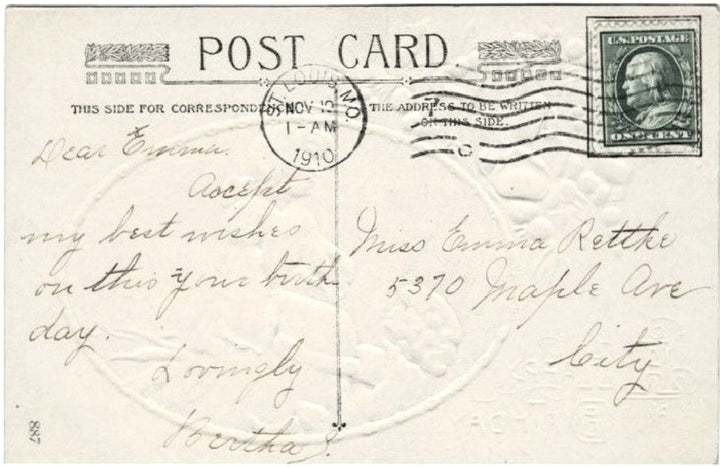 POST CARD
U.S. POSTAGE
ONE CENT
ST. LOUIS, MO.
NOV 15
1-AM
1910
THIS SIDE FOR CORRESPONDENCE
THE ADDRESS TO BE WRITTEN
ON THIS SIDE.
Dear Emma.
Accept
my best wishes
on this your birth
day.
Lovingly
Bertha J.
Miss Emma Rettke
5370 Maple Ave
City
887